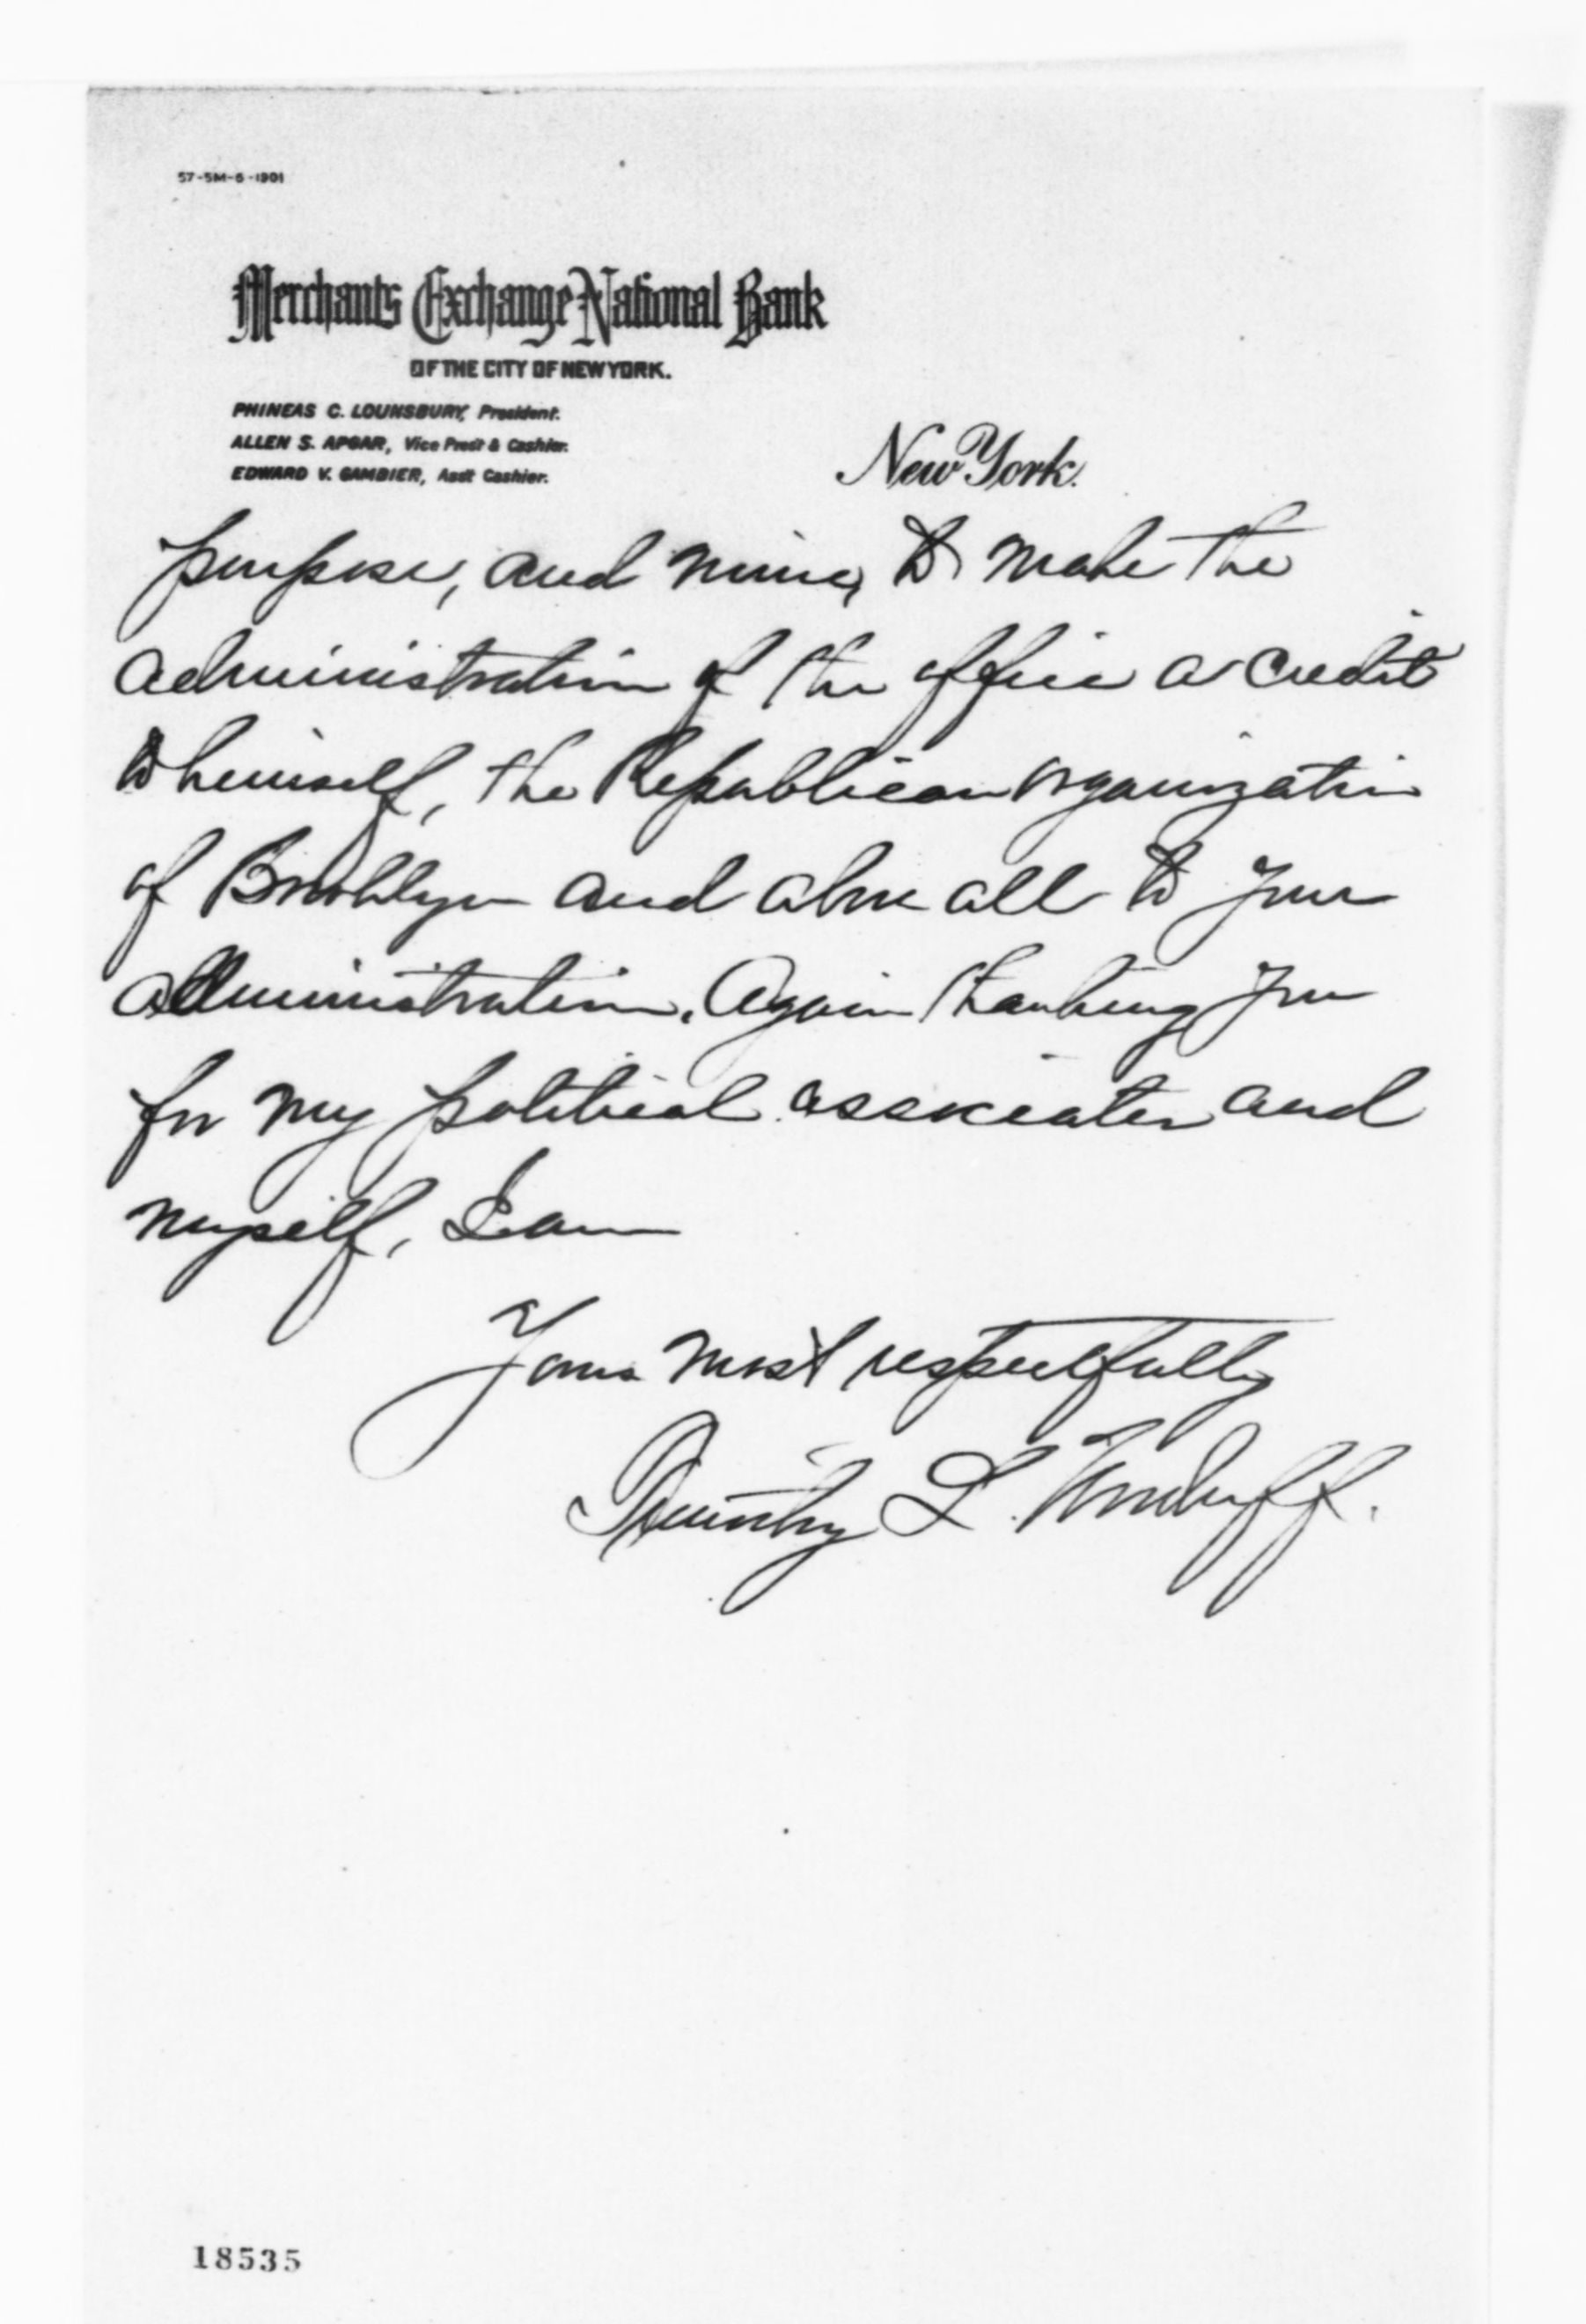 57-5M-6-1901
Merchants Exchange National Bank
OF THE CITY OF NEW YORK.
PHINEAS C. LOUNSBURY, President.
ALLEN S. APGAR, Vice Prest & Cashier.
EDWARD V. GAMBIER, Asst Cashier.
New York.
purpose, and mine, to make the
administration of the office a credit
to himself, the Republican organization
of Brooklyn and above all to your
administration. Again thanking you
for my political associates and
myself, I am
Yours most respectfully
Timothy L. Woodruff.
18535